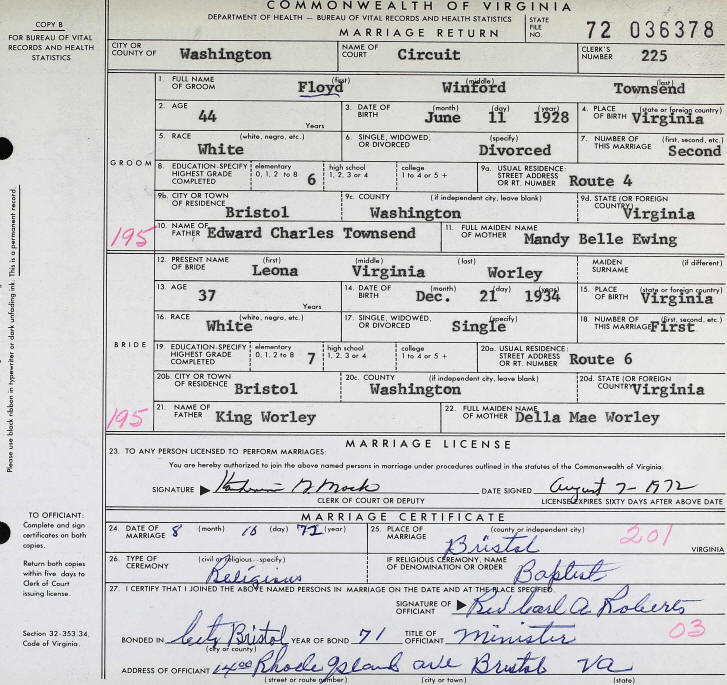 COMMONWEALTH OF VIRGINIA
COPY B
DEPARTMENT OF HEALTH — BUREAU OF VITAL RECORDS AND HEALTH STATISTICS
FOR BUREAU OF VITAL RECORDS AND HEALTH STATISTICS
MARRIAGE RETURN
STATE FILE NO. 72 036378
CITY OR COUNTY OF Washington NAME OF COURT Circuit CLERK'S NUMBER 225
GROOM
1. FULL NAME OF GROOM Floyd (first) Winford (middle) Townsend (last)
2. AGE 44 Years 3. DATE OF BIRTH June (month) 11 (day) 1928 (year) 4. PLACE OF BIRTH (state or foreign country) Virginia
5. RACE (white, negro, etc.) White 6. SINGLE, WIDOWED, OR DIVORCED (specify) Divorced 7. NUMBER OF THIS MARRIAGE (first, second, etc.) Second
8. EDUCATION-SPECIFY HIGHEST GRADE COMPLETED elementary 0, 1, 2 to 8 6 high school 1, 2, 3 or 4 college 1 to 4 or 5 + 9a. USUAL RESIDENCE: STREET ADDRESS OR RT. NUMBER Route 4
9b. CITY OR TOWN OF RESIDENCE Bristol 9c. COUNTY (if independent city, leave blank) Washington 9d. STATE (OR FOREIGN COUNTRY) Virginia
195 10. NAME OF FATHER Edward Charles Townsend 11. FULL MAIDEN NAME OF MOTHER Mandy Belle Ewing
BRIDE
12. PRESENT NAME OF BRIDE (first) Leona (middle) Virginia (last) Worley MAIDEN SURNAME (if different)
13. AGE 37 Years 14. DATE OF BIRTH (month) Dec. 21 (day) 1934 (year) 15. PLACE OF BIRTH (state or foreign country) Virginia
16. RACE (white, negro, etc.) White 17. SINGLE, WIDOWED, OR DIVORCED (specify) Single 18. NUMBER OF THIS MARRIAGE (first, second, etc.) First
19. EDUCATION-SPECIFY HIGHEST GRADE COMPLETED elementary 0, 1, 2 to 8 7 high school 1, 2, 3 or 4 college 1 to 4 or 5 + 20a. USUAL RESIDENCE: STREET ADDRESS OR RT. NUMBER Route 6
20b. CITY OR TOWN OF RESIDENCE Bristol 20c. COUNTY (if independent city, leave blank) Washington 20d. STATE (OR FOREIGN COUNTRY) Virginia
195 21. NAME OF FATHER King Worley 22. FULL MAIDEN NAME OF MOTHER Della Mae Worley
Please use black ribbon in typewriter or dark unfading ink. This is a permanent record.
MARRIAGE LICENSE
23. TO ANY PERSON LICENSED TO PERFORM MARRIAGES:
You are hereby authorized to join the above named persons in marriage under procedures outlined in the statutes of the Commonwealth of Virginia.
SIGNATURE Mock DATE SIGNED August 7-1972
CLERK OF COURT OR DEPUTY LICENSE EXPIRES SIXTY DAYS AFTER ABOVE DATE
TO OFFICIANT:
Complete and sign certificates on both copies.
Return both copies within five days to Clerk of Court issuing license.
Section 32-353.34, Code of Virginia.
MARRIAGE CERTIFICATE
24. DATE OF MARRIAGE 8 (month) (day) (year) 25. PLACE OF MARRIAGE (county or independent city) Bristol 201 VIRGINIA
26. TYPE OF CEREMONY (civil or religious—specify) Religious IF RELIGIOUS CEREMONY, NAME OF DENOMINATION OR ORDER Baptist
27. I CERTIFY THAT I JOINED THE ABOVE NAMED PERSONS IN MARRIAGE ON THE DATE AND AT THE PLACE SPECIFIED.
SIGNATURE OF OFFICIANT Rev Carl A Roberts
BONDED IN City Bristol (city or county) YEAR OF BOND 71 TITLE OF OFFICIANT Minister 03
ADDRESS OF OFFICIANT 1400 Rhode Island ave Bristol VA
(street or route number) (city or town) (state)